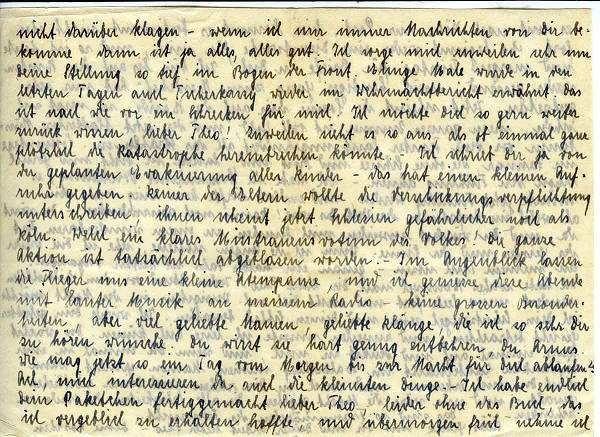 nicht darüber klagen – wenn ich nur immer Nachrichten von dir be-
komme, dann ist ja alles, alles gut. Ich sorge mich zuweilen sehr um
deine Stellung so tief im Bogen der Front. Einige Male wurde in den
letzten Tagen auch Tscherkassy wieder im Wehrmachtbericht erwähnt. Das
ist nach wie vor ein Schrecken für mich! Ich möchte dich so gern weiter
zurück wissen, lieber Theo! Zuweilen sieht es so aus als ob einmal ganz
plötzlich die Katastrophe hereinbrechen könnte. – Ich schrieb dir ja von
der geplanten Evakuierung aller Kinder – das hat einen kleinen Auf-
ruhr gegeben. Keiner der Eltern wollte die Verschickungsverpflichtung
unterschreiben, ihnen scheint jetzt Schlesien gefährlicher noch als
Köln. Welch ein klares Misstrauensvotum des Volkes! Die ganze
Aktion ist tatsächlich abgeblasen worden. – Im Augenblick lassen
die Flieger uns eine kleine Atempause, und ich geniesse diese Abende
mit lauter Musik an meinem Radio – keine grossen Besonder-
heiten, aber viel geliebte Namen, geliebte Klänge, die ich so sehr dir
zu hören wünsche. Du wirst sie hart genug entbehren, du Armer.
Wie mag jetzt so ein Tag vom Morgen bis zur Nacht für dich ablaufen?
Ach, mich interessieren da auch die kleinsten Dinge. – Ich habe endlich
dein Päketchen fertiggemacht lieber Theo, leider ohne das Buch, das
ich vergeblich zu erhalten hoffte, und übermorgen früh nehme ich